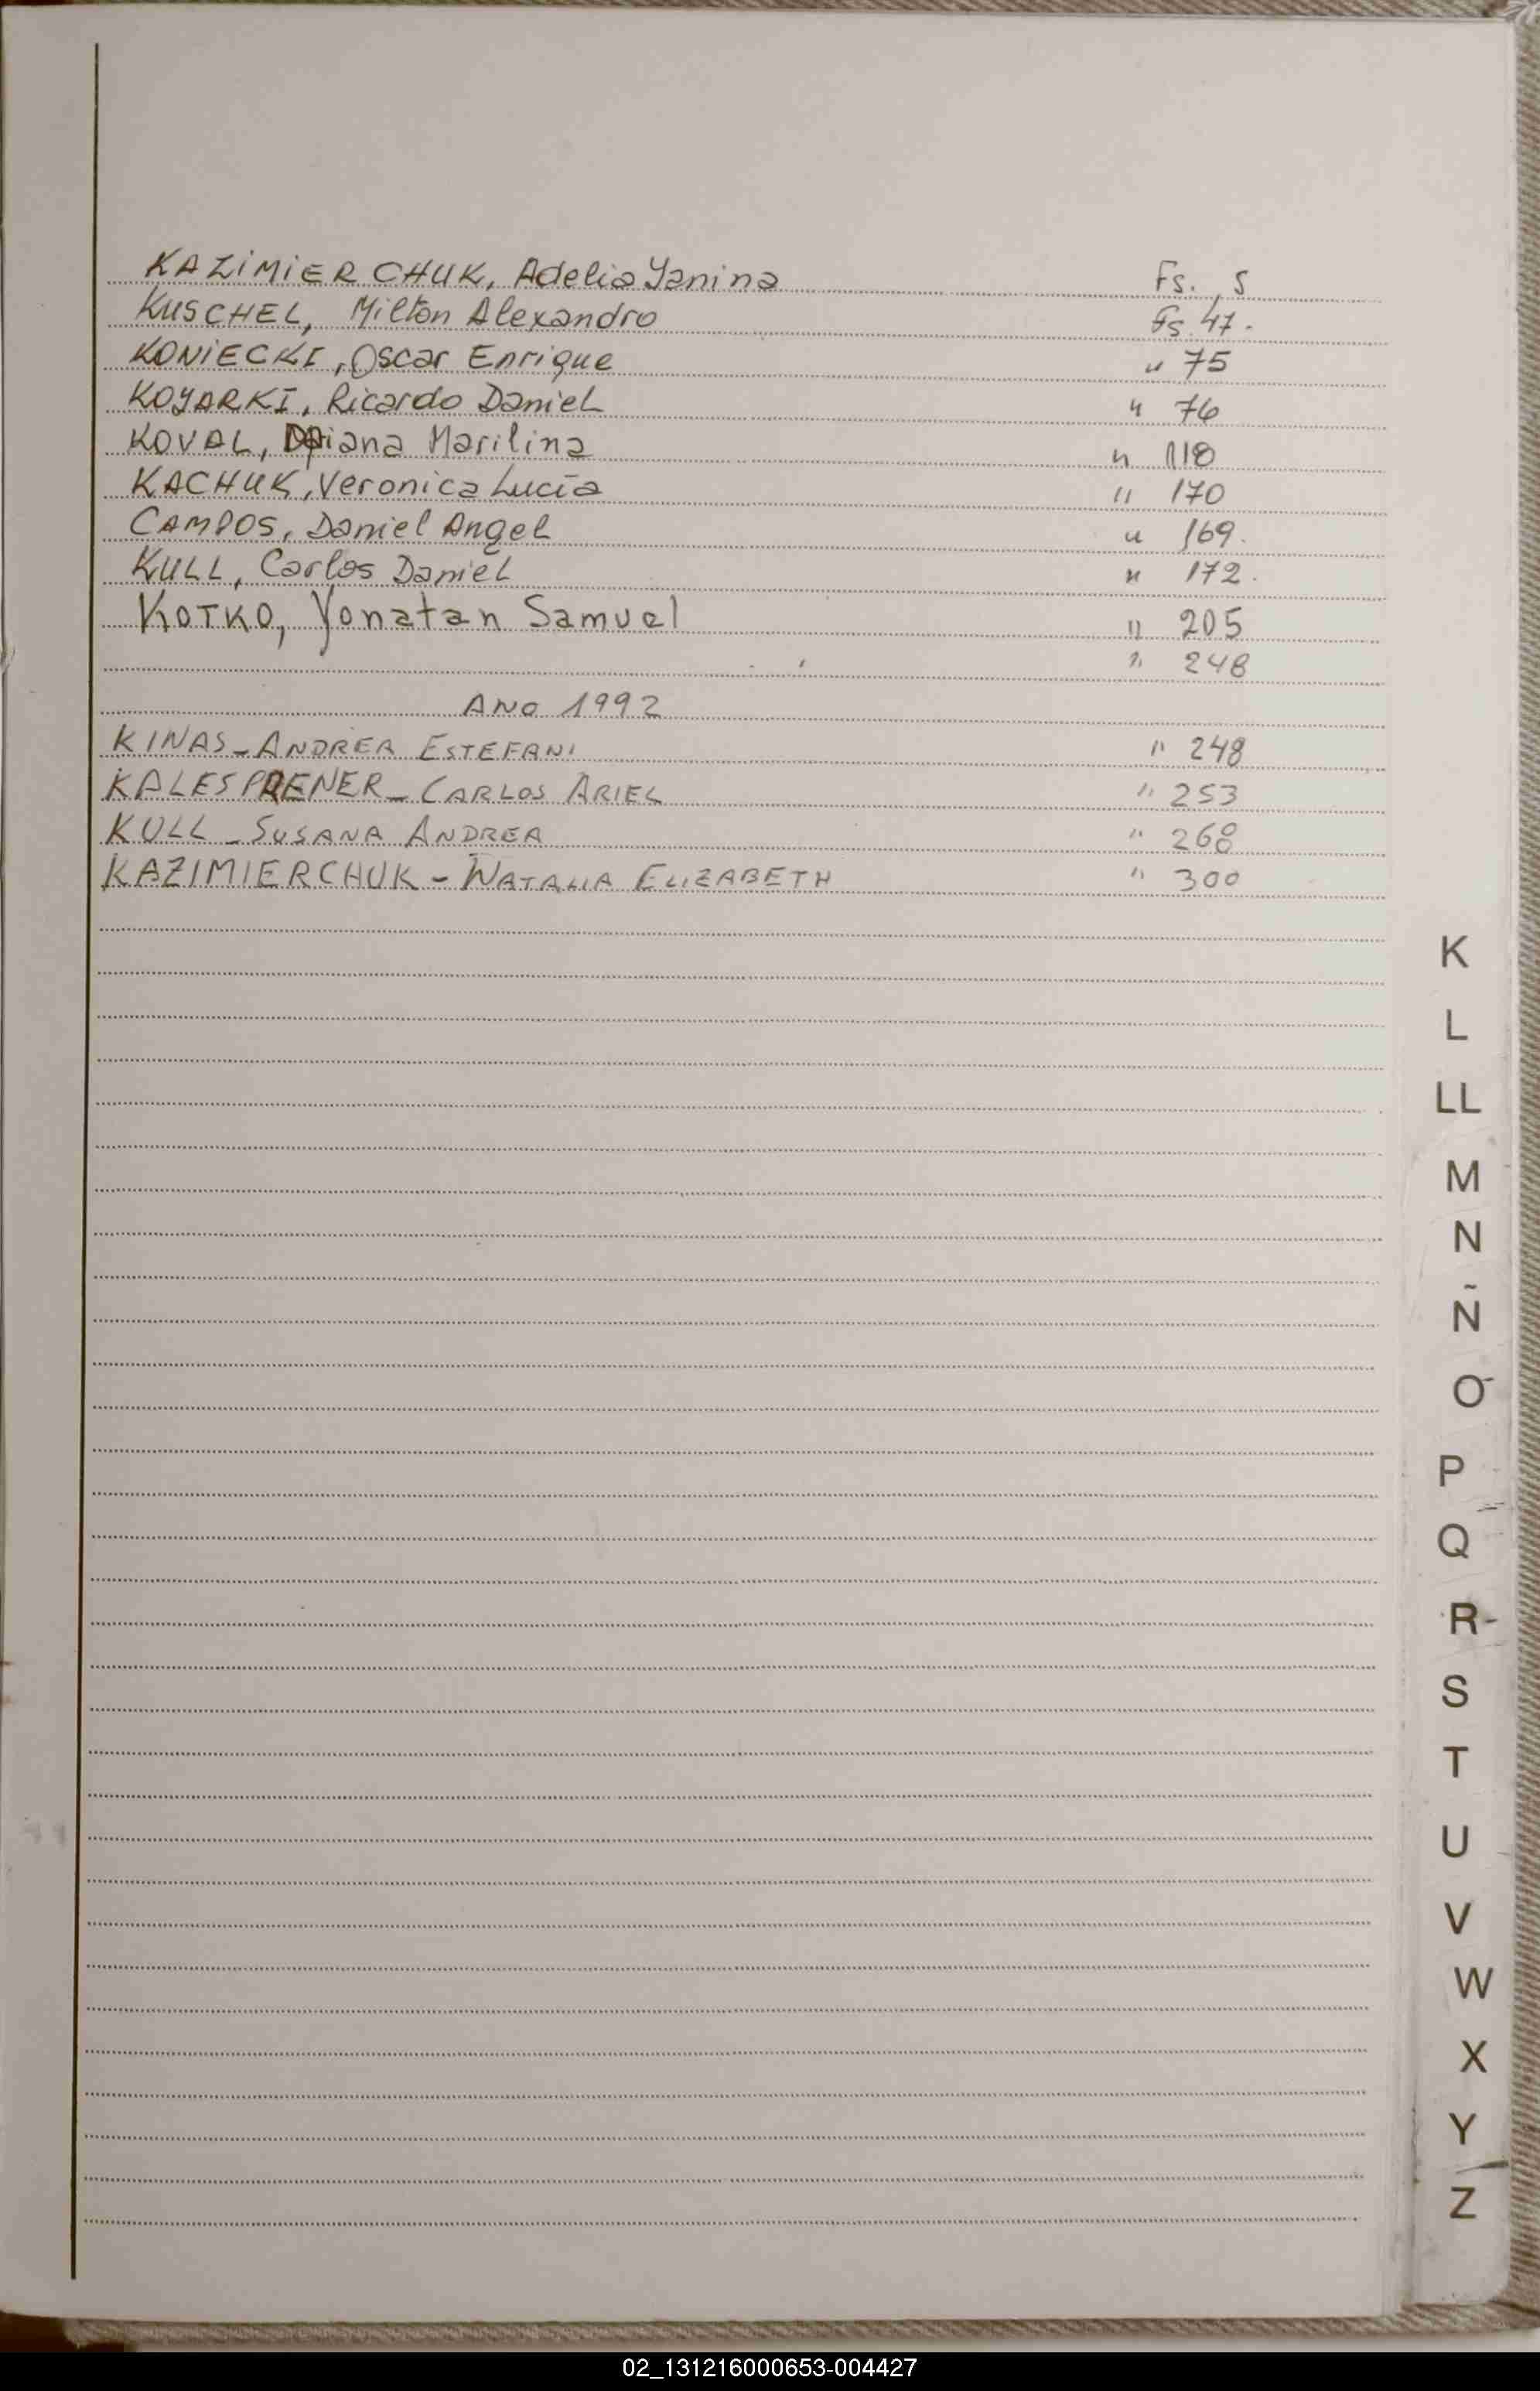 KAZIMIERCHUK, Adelia Yanina Fs. 5
KUSCHEL, Milton Alexandro Fs. 47.
KONIECKI, Oscar Enrique " 75
KOYARKI, Ricardo Daniel " 76
KOVAL, Daiana Marilina " 118
KACHUK, Veronica Lucía " 170
CAMPOS, Daniel Angel " 169.
KULL, Carlos Daniel " 172.
KOTKO, Yonatan Samuel " 205
" 248
AÑO 1992
KINAS - ANDREA ESTEFANI " 248
KALESPRENER - CARLOS ARIEL " 253
KULL - SUSANA ANDREA " 268
KAZIMIERCHUK - NATALIA ELIZABETH " 300
K
L
LL
M
N
Ñ
O
P
Q
R
S
T
U
V
W
X
Y
Z
02_131216000653-004427